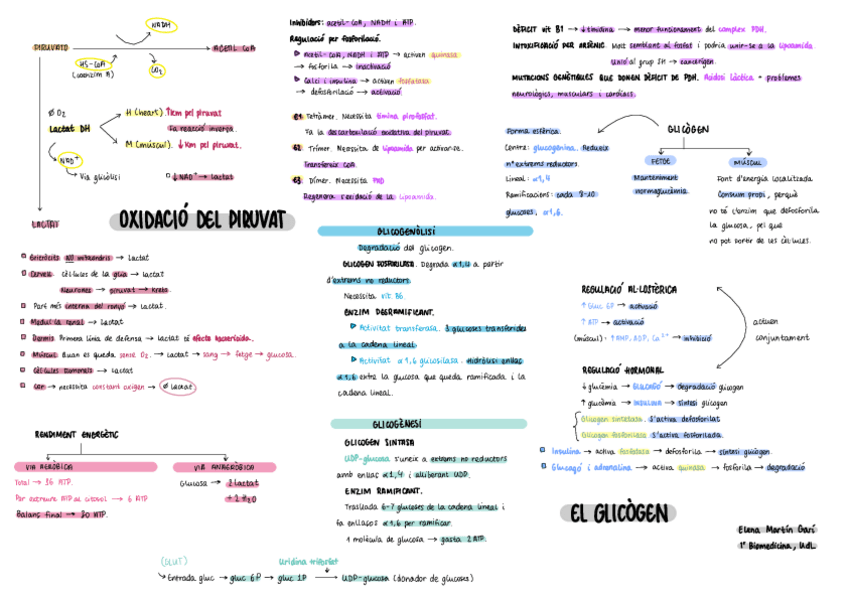 NADH
PIRUVATO
ACETIL CoA
HS-CoA
(coenzim A)
CO₂
Ø O₂
Lactat DH
H (heart). ↑Km pel piruvat
Fa reacció inversa.
M (múscul). ↓ Km pel piruvat.
NAD⁺
Via glicòlisi
↓ NAD⁺ → Lactat
LACTAT
OXIDACIÓ DEL PIRUVAT
Eritròcits no mitocondris → Lactat
Cervell cèl·lules de la glia → Lactat
Neurones → piruvat → Krebs
Part més interna del ronyó → Lactat.
Medul·la renal → Lactat
Dermis Primera línia de defensa → Lactat té efecte bactericida.
Múscul Quan es queda sense O₂. → Lactat → sang → fetge → glucosa.
Cèl·lules tumorals → Lactat
Cor → necessita constant oxigen → Ø Lactat
RENDIMENT ENERGÈTIC
VIA AERÒBICA
VIA ANAERÒBICA
Total → 36 ATP.
Per extreure ATP al citosol → 6 ATP
Balanç final → 30 ATP.
Glucosa → 2 Lactat
+ 2 H₂O
Inhibidors: acetil-CoA, NADH i ATP.
Regulació per fosforilació.
Acetil-CoA, NADH i ATP → activen quinasa
→ fosforila → inactivació
Calci i insulina → activen fosfatasa
→ defosforilació → activació.
E1. Tetràmer. Necessita timina pirofosfat.
Fa la descarboxilació oxidativa del piruvat.
E2. Trímer. Necessita de lipoamida per activar-se.
Transfereix CoA.
E3. Dímer. Necessita FAD
Regenera l'oxidació de la lipoamida.
GLICOGENÒLISI
Degradació del glicogen.
GLICOGEN FOSFORILASA. Degrada α1,4 a partir
d'extrems no reductors.
Necessita vit. B6
ENZIM DEGRAMIFICANT.
Activitat transferasa. 3 glucoses transferides
a la cadena lineal
Activitat α1,6 glucosilasa. Hidròlisi enllaç
α1,6 entre la glucosa que queda ramificada i la
cadena lineal.
GLICOGÈNESI
GLICOGEN SINTASA
UDP-glucosa s'uneix a extrems no reductors
amb enllaç α1,4 i alliberant UDP.
ENZIM RAMIFICANT.
Trasllada 6-7 glucoses de la cadena lineal i
fa enllaços α1,6 per ramificar.
1 molècula de glucosa → gasta 2 ATP.
(GLUT)
Uridina trifosfat
Entrada gluc → gluc 6P → gluc 1P → UDP-glucosa (donador de glucoses)
DÈFICIT vit B1 → ↓ timidina → menor funcionament del complex PDH.
INTOXIFICACIÓ PER ARSÈNIC Molt semblant al fosfat i podria unir-se a la lipoamida
Unió al grup SH → cancerigen.
MUTACIONS GENÈTIQUES QUE DONEN DÈFICIT DE PDH. Acidosi làctica + problemes
neurològics, musculars i cardíacs.
GLICÒGEN
Forma esfèrica.
Centre: glucogenina. Redueix
nº extrems reductors.
Lineal: α1,4
Ramificacions: cada 8-10
glucoses, α1,6.
FETGE
Manteniment
normoglucèmia.
MÚSCUL
Font d'energia localitzada
Consum propi, perquè
no té l'enzim que defosforila
la glucosa, pel que
no pot sortir de les cèl·lules.
REGULACIÓ AL·LOSTÈRICA
↑ Gluc 6P → activació
↑ ATP → activació
(múscul): ↑ AMP, ADP, Ca²⁺ → inhibició
actuen
conjuntament
REGULACIÓ HORMONAL
↓ glucèmia → GLUCAGÓ → degradació glicogen
↑ glucèmia → INSULINA → síntesi glicogen
Glicogen sintetasa. S'activa defosforilat
Glicogen fosforilasa S'activa fosforilada.
Insulina → activa fosfatasa → defosforila → síntesi glicogen.
Glucagó i adrenalina → activa quinasa → fosforila → degradació
EL GLICÒGEN
Elena Martín Garí
1r Biomedicina, UdL